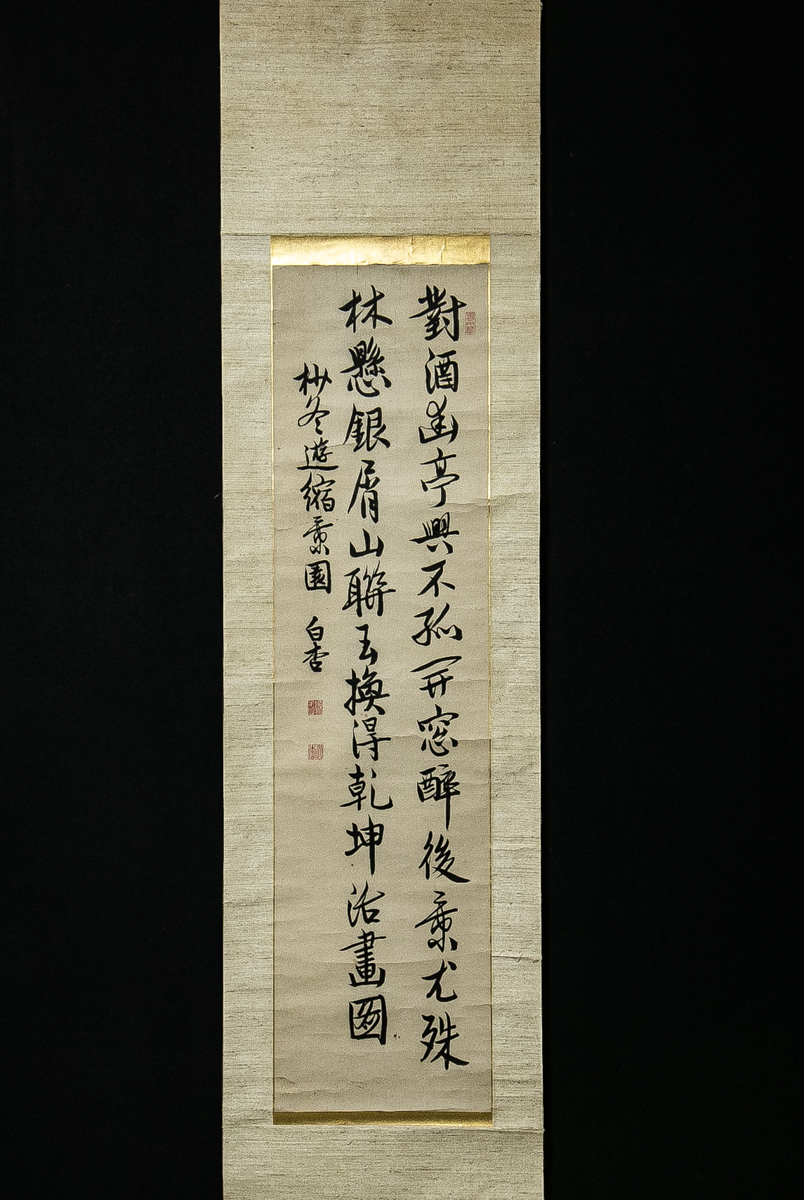 對酒幽亭興不孤開窓醉後景尤殊
林懸銀屑山聯玉換得乾坤活畫圖
杪冬遊縮景園 白杏